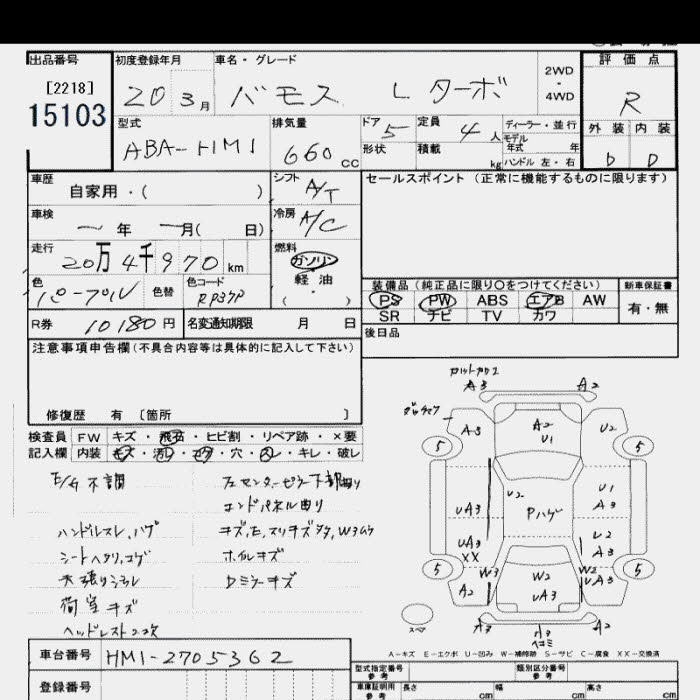 出品番号 初度登録年月 車名・グレード 評価点
[2218]
15103 20 3月 バモス L ターボ 2WD・4WD R
型式 排気量 ドア 定員 ディーラー・並行 外装 内装
ABA-HM1 660cc 5 4人 モデル年式 年 D D
形状 積載 kg ハンドル 左・右
車歴 自家用・( ) シフト A/T セールスポイント (正常に機能するものに限ります)
車検 年 月( 日) 冷房 A/C
走行 20万4千970km 燃料 ガソリン 軽油 ( )
色 パープル 色替 色コード RP37P
装備品 (純正品に限り○をつけてください) 新車保証書
PS PW ABS エアB AW 有・無
SR ナビ TV カワ
R券 10180円 名変通知期限 月 日 後日品
注意事項申告欄(不具合内容等は具体的に記入して下さい)
修復歴 有 [箇所 ]
検査員 FW キズ・飛石・ヒビ割・リペア跡・×要
記入欄 内装 キズ・汚レ・コゲ・穴・スレ・キレ・破レ
E/G 不調
左センターピラー下部曲り
エンドパネル曲り
ハンドルスレ、ハゲ
キズ、E、スリキズ多タ、W3ムラ
シートヘタリ、コゲ
ホイルキズ
天張りシミ
Dミラーキズ
荷室キズ
ヘッドレスト2コ欠
A3 A2
A3 A2 U1 U2
5 5
UA3 U2 Pハゲ U1 A3
UA3 XX U2 A3
5 W3 W2 W2 UA3 5
A2 UA3
スペア A3 A3 ヘコミ A2
A-キズ E-エクボ U-凹み W-補修跡 S-サビ C-腐食 XX-交換済
車台番号 HM1-2705362
型式指定番号 参考 類別区分番号 参考
登録番号 車庫証明用 参考 長さ cm 幅 cm 高さ cm